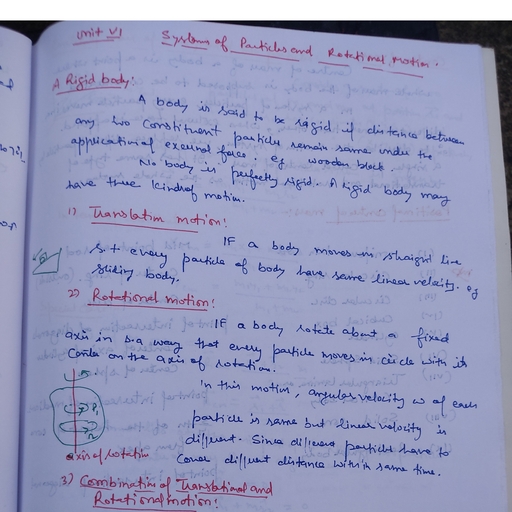 Unit VI Systems of Particles and Rotational motion.
A Rigid body:
A body is said to be rigid if distance between
any two constituent particle remain same under the
application of external force. eg wooden block.
No body is perfectly rigid. A rigid body may
have three kind of motion.
1) Translation motion:
IF a body moves in straight line
s.t every particle of body have same linear velocity. eg
sliding body.
2) Rotational motion:
IF a body rotate about a fixed
axis in s.a way that every particle moves in circle with its
Centre on the axis of rotation.
In this motion, angular velocity ω of each
particle is same but linear velocity is
different. Since different particles have to
Cover different distance within same time.
axis of rotation
3) Combination of Translational and
Rotational motion: